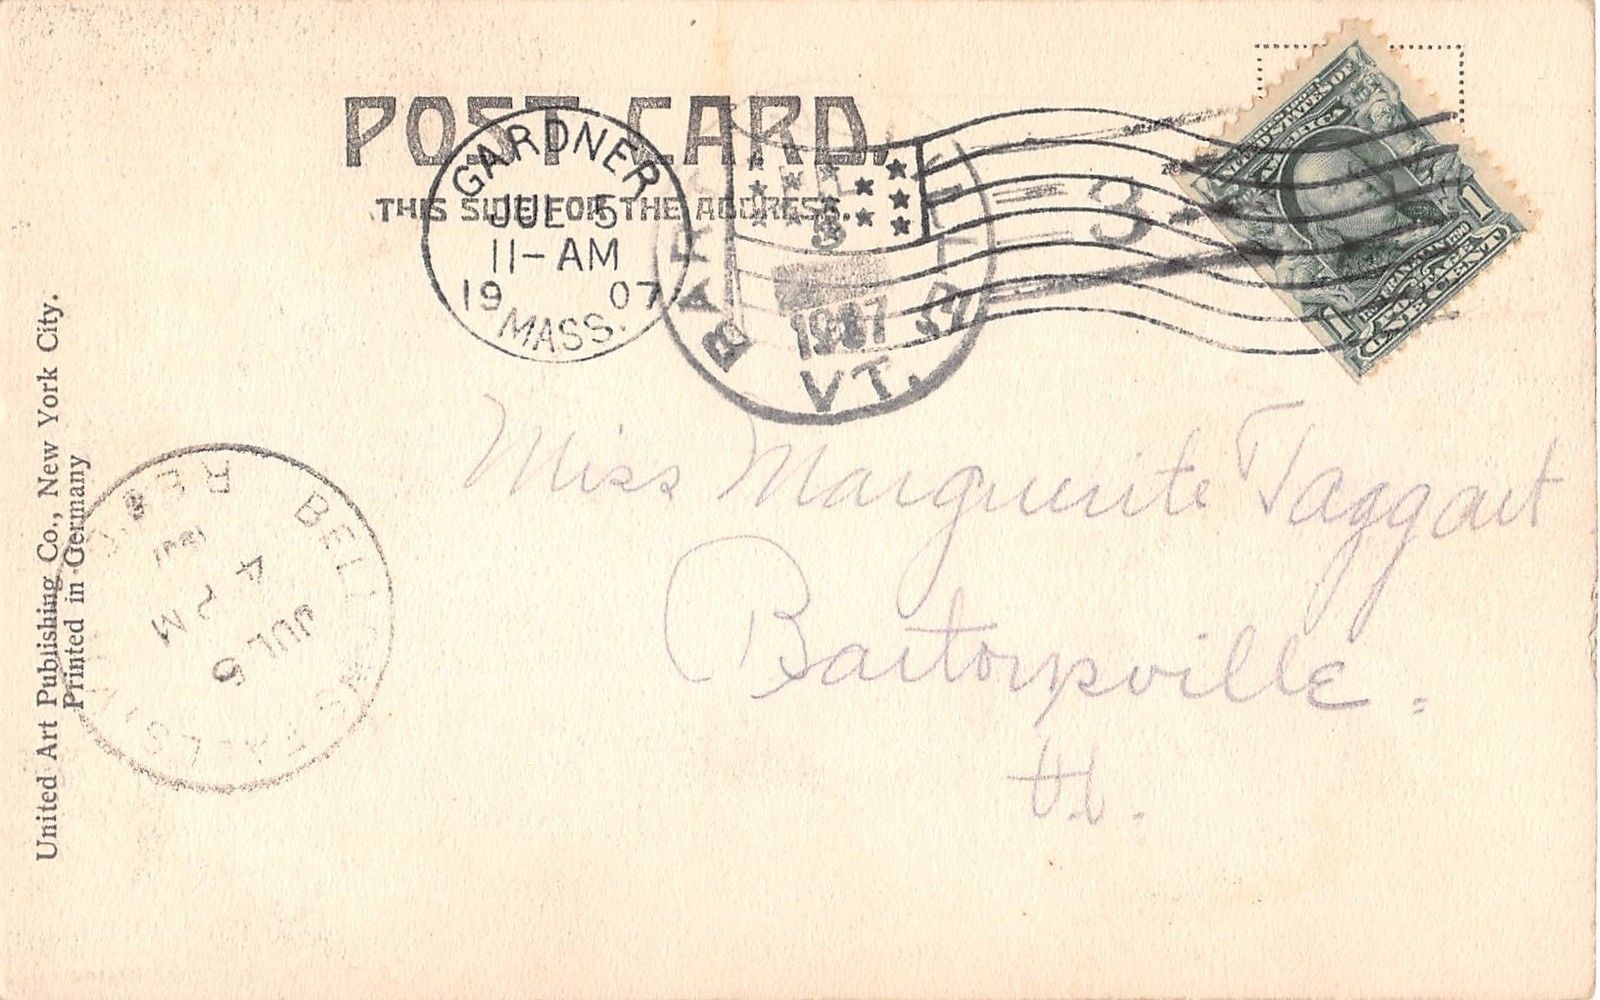 POST CARD.
THIS SIDE FOR THE ADDRESS.
GARDNER
JUL 5
11-AM
19 07
MASS.
BARTONSVILLE
1907
VT.
3
UNITED STATES OF
AMERICA
FRANKLIN
POSTAGE
ONE CENT
1 1
Miss Marguerite Taggart
Bartonsville.
Vt.
BELLOWS FALLS, VT.
REC'D
JUL 6
4 PM
1907
United Art Publishing Co., New York City.
Printed in Germany